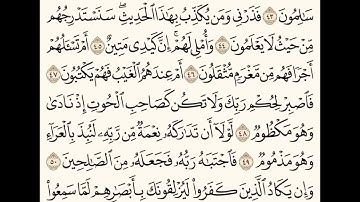 سَٰلِمُونَ ٤٣ فَذَرْنِى وَمَن يُكَذِّبُ بِهَٰذَا ٱلْحَدِيثِ ۖ سَنَسْتَدْرِجُهُم
مِّنْ حَيْثُ لَا يَعْلَمُونَ ٤٤ وَأُمْلِى لَهُمْ ۚ إِنَّ كَيْدِى مَتِينٌ ٤٥ أَمْ تَسْـَٔلُهُمْ
أَجْرًا فَهُم مِّن مَّغْرَمٍ مُّثْقَلُونَ ٤٦ أَمْ عِندَهُمُ ٱلْغَيْبُ فَهُمْ يَكْتُبُونَ ٤٧
فَٱصْبِرْ لِحُكْمِ رَبِّكَ وَلَا تَكُن كَصَاحِبِ ٱلْحُوتِ إِذْ نَادَىٰ
وَهُوَ مَكْظُومٌ ٤٨ لَّوْلَآ أَن تَدَٰرَكَهُۥ نِعْمَةٌ مِّن رَّبِّهِۦ لَنُبِذَ بِٱلْعَرَآءِ
وَهُوَ مَذْمُومٌ ٤٩ فَٱجْتَبَٰهُ رَبُّهُۥ فَجَعَلَهُۥ مِنَ ٱلصَّٰلِحِينَ ٥٠
وَإِن يَكَادُ ٱلَّذِينَ كَفَرُوا۟ لَيُزْلِقُونَكَ بِأَبْصَٰرِهِمْ لَمَّا سَمِعُوا۟